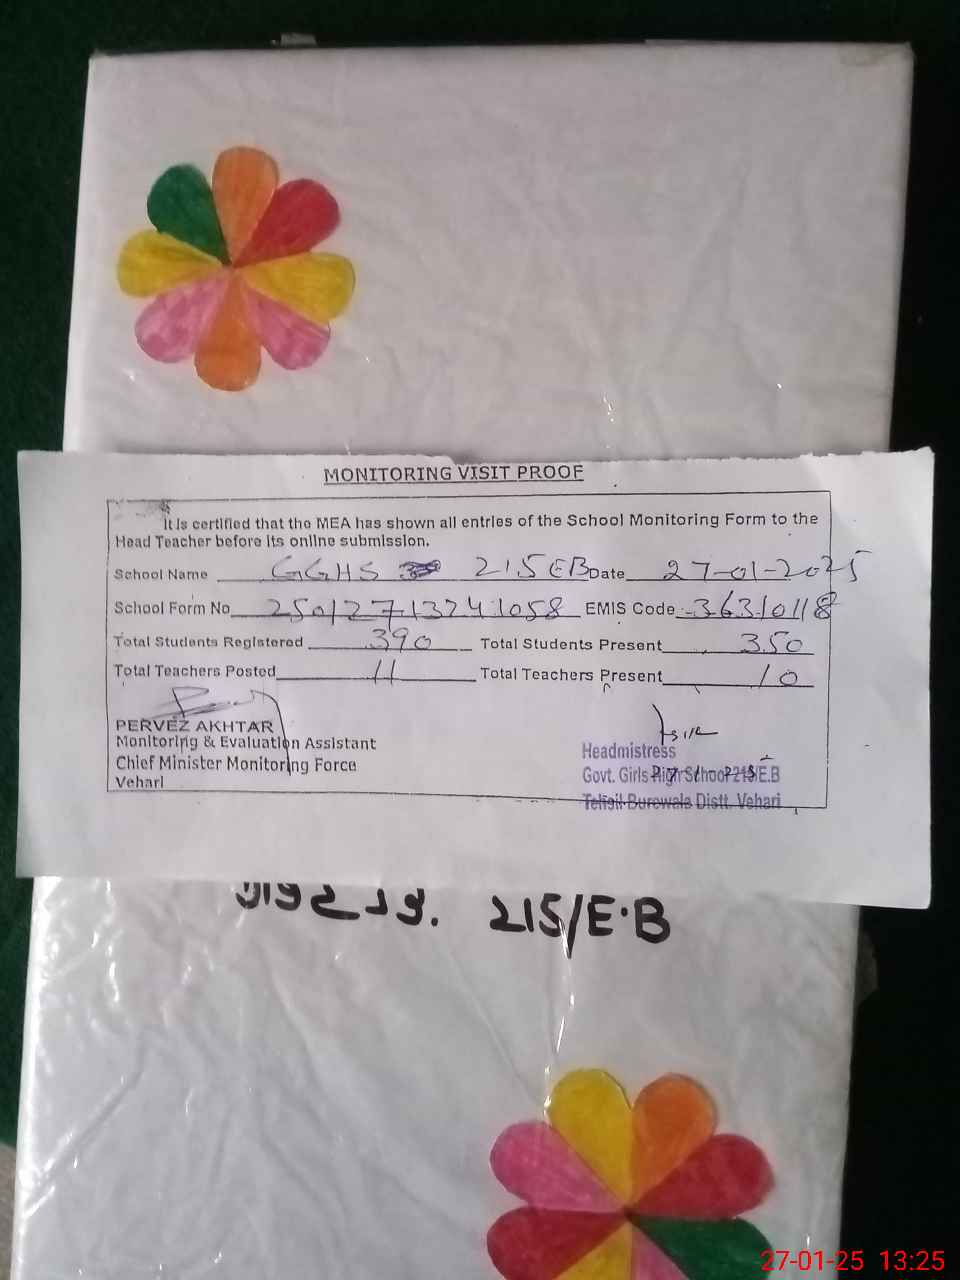 MONITORING VISIT PROOF
It is certified that the MEA has shown all entries of the School Monitoring Form to the
Head Teacher before its online submission.
School Name GGHS 215 EB Date 27-01-2025
School Form No 25012713241058 EMIS Code 36310118
Total Students Registered 390 Total Students Present 350
Total Teachers Posted 11 Total Teachers Present 10
PERVEZ AKHTAR
Monitoring & Evaluation Assistant
Chief Minister Monitoring Force
Vehari
Headmistress
Govt. Girls High School 215/E.B
Tehsil Burewala Distt. Vehari
215/E.B
27-01-25 13:25